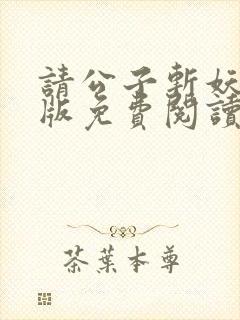 請公子斬妖
版免費閱讀
茶葉本尊